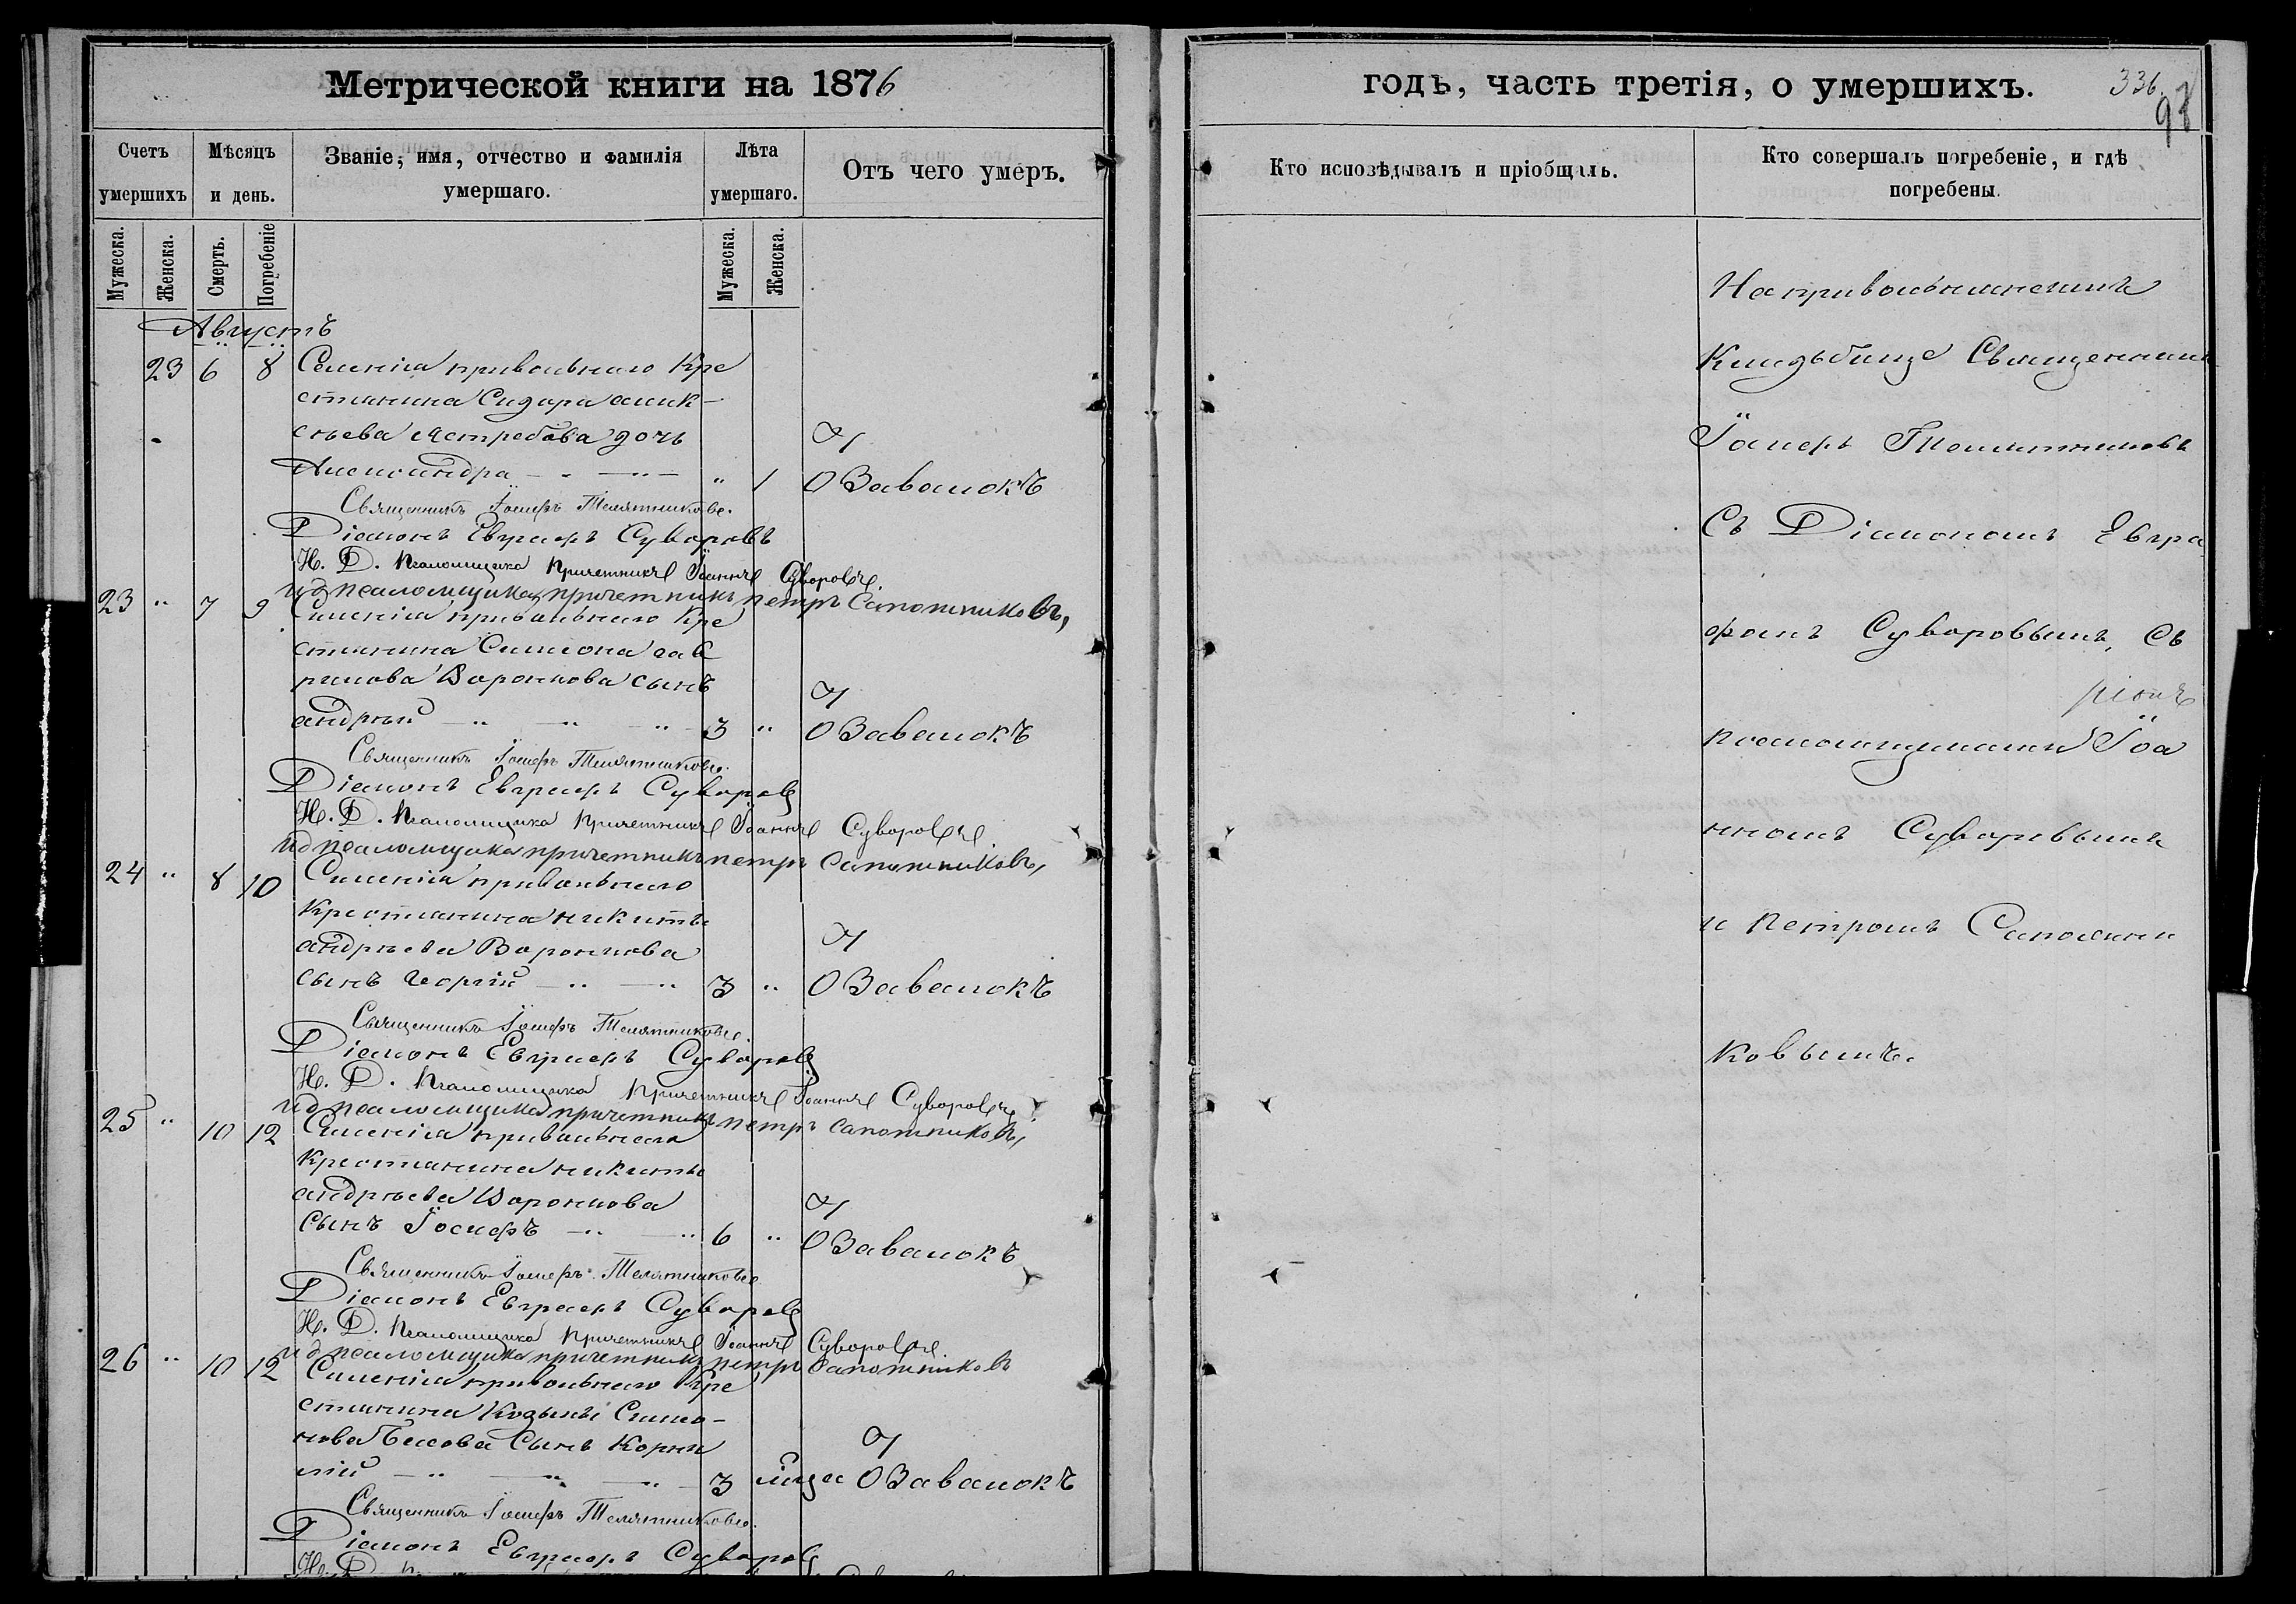 Метрической книги на 1876
Счетъ умершихъ
Мѣсяцъ и день.
Званіе, имя, отчество и фамилія умершаго.
Лѣта умершаго.
Отъ чего умеръ.
Мужеска.
Женска.
Смерть.
Погребеніе
Мужеска.
Женска.
Августъ
23 6 8 Селенія привольнаго Кре
стьянина Сидора алик-
сѣева Ястребова дочь
Александра " 1 О Завалокъ
Священникъ Іосифъ Телятниковъ.
Діаконъ Евграфъ Суворовъ
И. Д. Псаломщика Причетникъ Іоаннъ Суворовъ.
ид псаломщика причетникъ петръ Сапожниковъ,
23 " 7 9 Селенія привольнаго Кре
стьянина Симиона гав
рилова Воронкова сынъ
андрей 3 " О Завалокъ
Священникъ Іосифъ Телятниковъ.
Діаконъ Евграфъ Суворовъ
И. Д. Псаломщика Причетникъ Іоаннъ Суворовъ.
ид псаломщика причетникъ петръ Сапожниковъ,
24 " 8 10 Селенія привольнаго
Крестьянина никиты
андрѣева Воронкова
сынъ Георгій 3 " О Завалокъ
Священникъ Іосифъ Телятниковъ.
Діаконъ Евграфъ Суворовъ
И. Д. Псаломщика Причетникъ Іоаннъ Суворовъ.
ид псаломщика причетникъ петръ Сапожниковъ,
25 " 10 12 Селенія привольнаго
Крестьянина никиты
андрѣева Воронкова
Сынъ Іосифъ 6 " О Завалокъ
Священникъ Іосифъ Телятниковъ
Діаконъ Евграфъ Суворовъ
И. Д. Псаломщика Причетникъ Іоаннъ Суворовъ.
ид псаломщика причетникъ петръ Сапожниковъ
26 " 10 12 Селенія привольнаго Кре
стьянина Козьмы Симо-
нова Сынъ Корни
лій 3 О Завалокъ
Священникъ Іосифъ Телятниковъ.
Діаконъ Евграфъ Суворовъ
И. Д.
годъ, часть третія, о умершихъ.
336.
98
Кто исповѣдывалъ и пріобщалъ.
Кто совершалъ погребеніе, и гдѣ погребены.
На привольнинскомъ
Кладьбище Священникъ
Іосифъ Телятниковъ
Съ Діакономъ Евгра
фомъ Суворовымъ, Съ
псаломщиками Іоа
нномъ Суворовымъ
и Петромъ Сапожни
ковымъ.